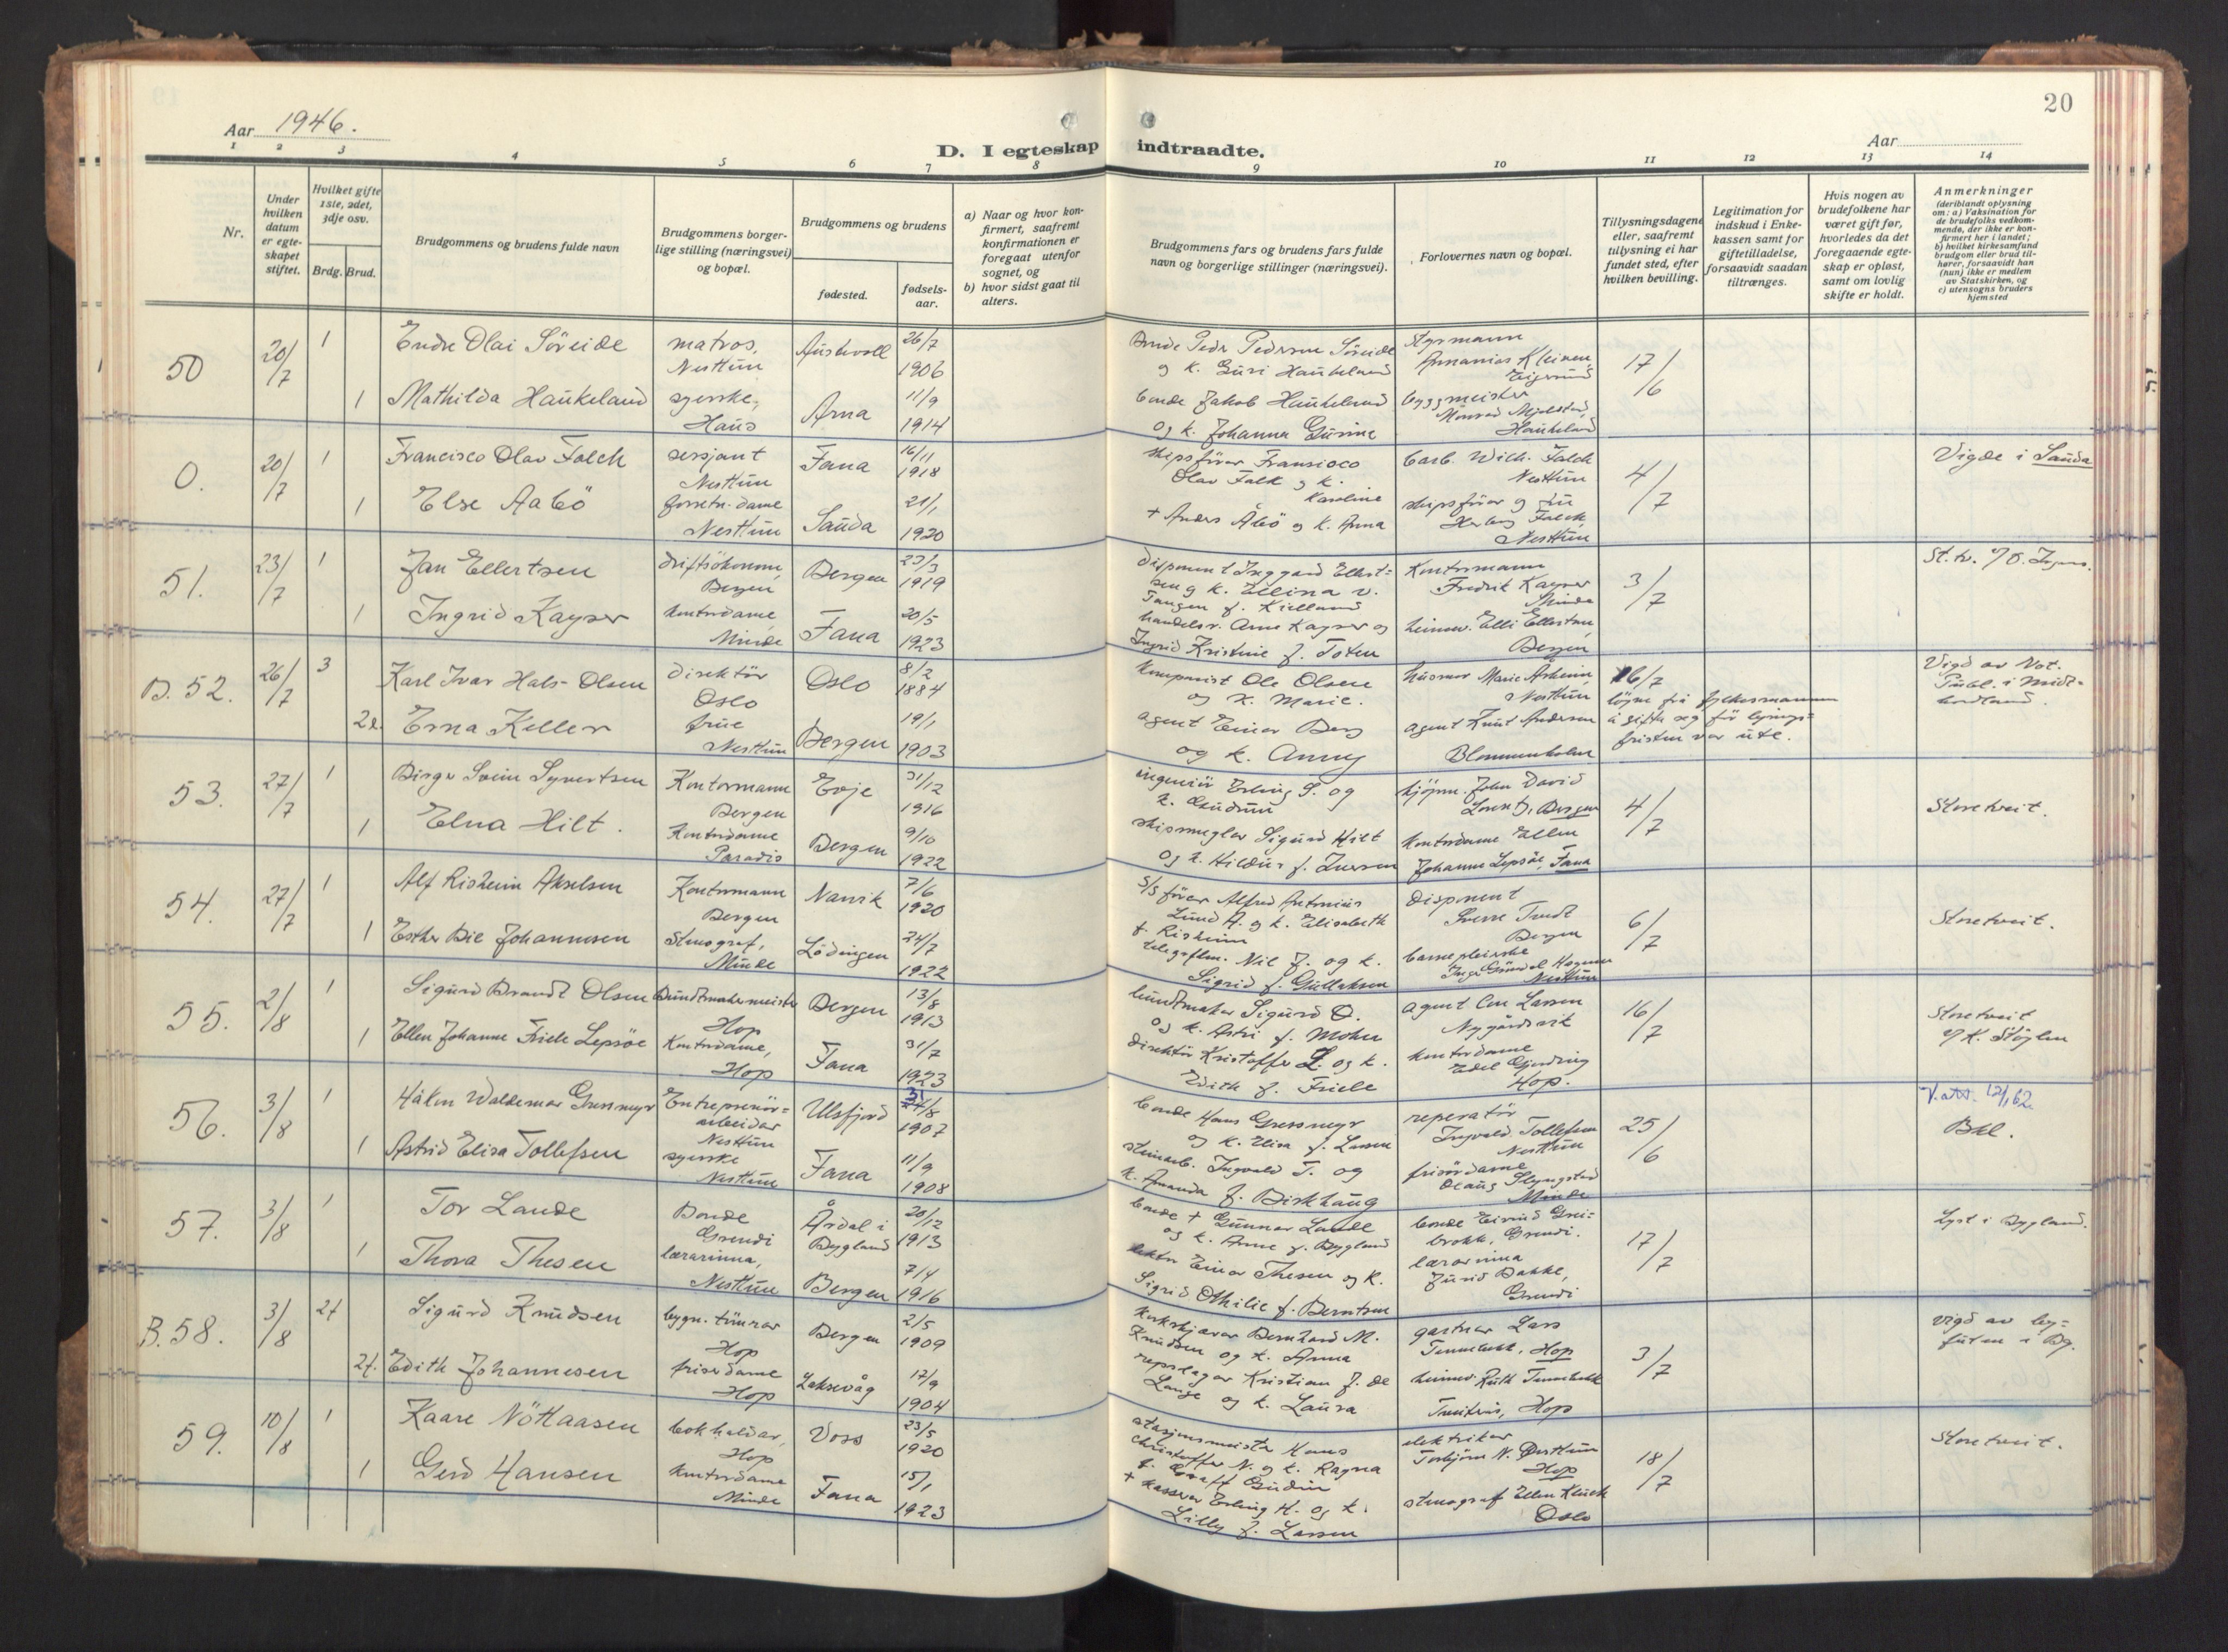 20
Aar 1946.
D. I egteskap indtraadte.
Aar
1 2 3 4 5 6 7 8 9 10 11 12 13 14
Nr.
Under hvilken datum er egteskapet stiftet.
Hvilket gifte 1ste, 2det, 3dje osv.
Brdg. Brud.
Brudgommens og brudens fulde navn
Brudgommens borgerlige stilling (næringsvei) og bopæl.
Brudgommens og brudens
fødested.
fødselsaar.
a) Naar og hvor konfirmert, saafremt konfirmationen er foregaat utenfor sognet, og
b) hvor sidst gaat til alters.
Brudgommens fars og brudens fars fulde navn og borgerlige stillinger (næringsvei).
Forlovernes navn og bopæl.
Tillysningsdagene eller, saafremt tillysning ei har fundet sted, efter hvilken bevilling.
Legitimation for indskud i Enkekassen samt for giftetilladelse, forsaavidt saadan tiltrænges.
Hvis nogen av brudefolkene har været gift før, hvorledes da det foregaaende egteskap er opløst, samt om lovlig skifte er holdt.
Anmerkninger (deriblandt oplysning om: a) Vaksination for de brudefolks vedkommende, der ikke er konfirmert her i landet; b) hvilket kirkesamfund brudgom eller brud tilhører, forsaavidt han (hun) ikke er medlem av Statskirken, og c) utensogns bruders hjemsted
50 20/7 1 Endre Olai Söreide matros, Nesttun Austevoll 26/7 1906
Bonde Peder Pedersen Söreide og k. Guri Haukeland
styrmann Ananias Kleiven 17/6
1 Mathilda Haukeland syerske, Haus Arna 11/9 1914
bonde Jakob Haukeland og k. Johanna Gurine
byggmeister Haukeland
0. 20/7 1 Francisco Olav Falck sersjant Nesttun Fana 16/11 1918
skipsförar Fransisco Olav Falk og k. Karoline
Wilh. Falck Nesttun 4/7
Vigde i Sauda
1 Else Aabö forretn. dame Nesttun Sauda 21/1 1920
+ Anders Åbö og k. Anna
skipsförar og Falck Nesttun
51. 23/7 1 Jan Ellertsen driftsökonom, Bergen Bergen 23/3 1919
disponent Ellertsen og k. Ellina v. Tangen f. Kielland
Kontormann Fredrik Kayser Minde 3/7
1 Ingrid Kayser kontordame Minde Fana 20/5 1923
handelsr. Arne Kayser og Ingrid Kristine f. Toten
heimev. Elli Ellertsen, Bergen
B. 52. 26/7 3 Karl Ivar Hals-Olsen direktör Oslo Oslo 8/2 1884
komponist Ole Olsen og k. Marie.
husmor Marie Nesttun 16/7
löyve frå fylkesmannen å gifta seg för lysingsfristen var ute.
Vigd av Not. Publ. i Midthordland.
2e. Erna Keller frue Nesttun Bergen 19/1 1903
agent Einar Berg og k. Anny
agent Knut Andersen Blommenholm
53. 27/7 1 Birger Svein Syvertsen Kontormann Bergen Evje 31/12 1916
ingeniör Erling S. og k. Gudrun
John David Lorentz, Bergen 4/7
Storetveit.
1 Elna Hilt. Kontordame Paradis Bergen 9/10 1922
skipsmegler Sigurd Hilt og k. Hildur f. Iversen
kontordame Ellen Johanne Lepsöe, Fana
54. 27/7 1 Alf Risheim Akselsen Kontormann Bergen Narvik 7/6 1920
s/s förer Alfred Antonius Lund A. og k. Elisabeth f. Risheim
disponent Sverre Bergen 6/7
Storetveit.
1 Esther Bie Johannesen Stenograf, Minde Lödingen 24/7 1922
telegrafbm. Nil J. og k. Sigrid f. Gullaksen
barnepleierske Nesttun
55. 2/8 1 Sigurd Brandt Olsen Bundtmakermeister Hop Bergen 13/8 1913
bundtmaker Sigurd O. og k. Astri f. Mohn
agent Larsen Nygårdsvik 16/7
Storetveit v/ K. Stöylen
1 Ellen Johanne Friele Lepsöe Kontordame, Hop Fana 31/7 1923
direktör Kristoffer L. og k. Edith f. Friele
kontordame Edel Gjerding Hop.
56. 3/8 1 Håkon Waldemar Gressmyr Entreprenörarbeidar Nesttun Ullsfjord 31/8 1907
bonde Hans Gressmyr og k. Elisa f. Larsen
reperatör Ingvald Tollefsen Nesttun 25/6
V.att. 12/1 62.
Bkl.
1 Astrid Elisa Tollefsen syerske Nesttun Fana 11/9 1908
steinarb. Ingvald T. og k. Amanda f. Birkhaug
frisördame Minde
57. 3/8 1 Tor Lande Bonde Grendi Årdal i Bygland 20/12 1913
bonde + Gunnar Lande og k. Anne f. Bygland
bonde Eivind Greibrokk, Grendi. 17/7
Lyst i Bygland.
1 Thora Thesen lærarinna, Nesttun Bergen 7/4 1916
lektor Einar Thesen og k. Sigrid Othilie f. Berntsen
lærarinna Jurid Bakke, Grendi
B. 58. 3/8 2f Sigurd Knudsen bygn. tömrar Hop Bergen 2/5 1909
Korkskjærar Bernhard M. Knudsen og k. Anna
gartner Lars Tennebekk, Hop 3/7
vigd av byfuten i Bg.
2f. Edith Johannesen frisördame Hop Laksevåg 17/9 1904
repslagar Kristian J. de Lange og k. Laura
heimev. Ruth Tennebekk Hop
59. 10/8 1 Kaare Nöttaasen bokhaldar, Hop Voss 23/5 1920
stasjonsmeister Hans Christoffer N. og k. Ragna f. Graff Gudim
elektriker Torbjörn N. Hop 18/7
Storetveit.
1 Gerd Hansen kontordame Minde Fana 15/1 1923
+ kasserer Erling H. og k. Lilly f. Larsen
stenograf Ellen Oslo